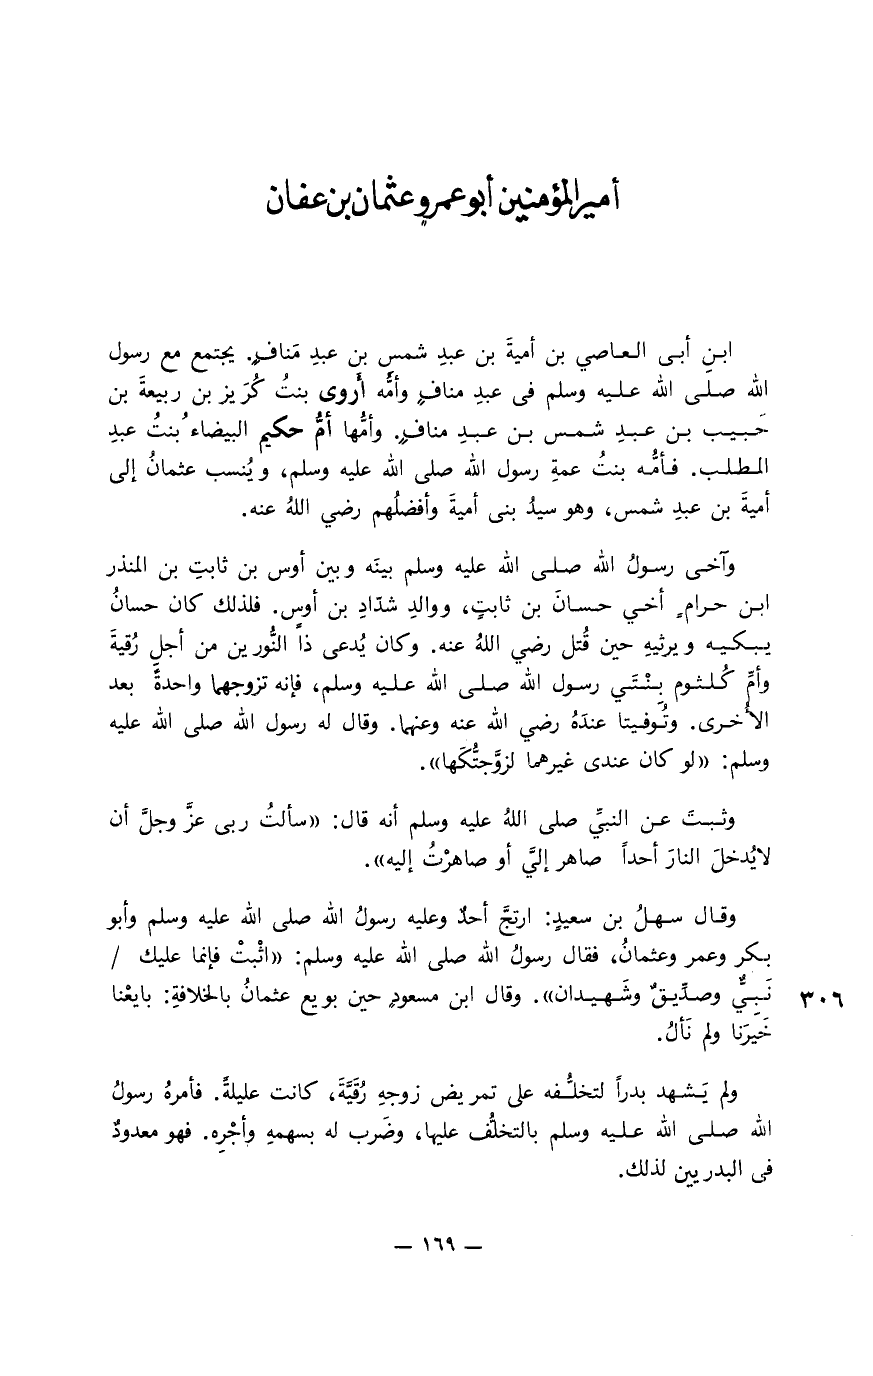 أمير المؤمنين أبو عمرو عثمان بن عفان
ابنِ أبى العاصي بن أميةَ بن عبدِ شمسٍ بن عبدِ مَنافٍ. يجتمع مع رسول
الله صلى الله عليه وسلم فى عبدِ منافٍ وأمُّه أَروى بنتُ كُرَيز بن ربيعةَ بن
حَبيب بن عبدِ شمس بن عبد منافٍ. وأمُّها أمُّ حكيم البيضاءُ بنتُ عبدِ
المطلب. فأمُّه بنتُ عمةِ رسول الله صلى الله عليه وسلم، ويُنسب عثمانُ إلى
أميةَ بن عبدِ شمس، وهو سيدُ بنى أميةَ وأفضلُهم رضي اللهُ عنه.
وآخى رسولُ الله صلى الله عليه وسلم بينَه وبين أوس بن ثابتِ بن المنذر
ابن حرامٍ أخي حسانَ بن ثابتٍ، ووالدِ شدّادِ بن أوسٍ. فلذلك كان حسانُ
يبكيه ويرثيهِ حين قُتل رضي اللهُ عنه. وكان يُدعى ذا النُّورين من أجلِ رُقيةَ
وأمِّ كُلثوم بِنْتَي رسول الله صلى الله عليه وسلم، فإنه تزوجها واحدةً بعد
الأُخرى. وتُوفيتا عندَهُ رضي الله عنه وعنها. وقال له رسول الله صلى الله عليه
وسلم: «لو كان عندى غيرهما لزوَّجتُكَها».
وثبتَ عن النبيِّ صلى اللهُ عليه وسلم أنه قال: «سألتُ ربى عزَّ وجلَّ أن
لايُدخلَ النارَ أحداً صاهر إليَّ أو صاهرْتُ إليه».
وقال سهلُ بن سعيدٍ: ارتجَّ أحدٌ وعليه رسولُ الله صلى الله عليه وسلم وأبو
بكر وعمر وعثمانُ، فقال رسولُ الله صلى الله عليه وسلم: «اثْبتْ فإنما عليك /
نَبيٌّ وصدِّيقٌ وشَهيدان». وقال ابن مسعودٍ حين بويع عثمانُ بالخلافةِ: بايعْنا ٣٠٦
خَيرَنا ولم نَألُ.
ولم يَشهد بدراً لتخلُّفه على تمريض زوجهِ رُقَيَّةَ، كانت عليلةً. فأمرهُ رسولُ
الله صلى الله عليه وسلم بالتخلُّف عليها، وضَرب له بسهمهِ وأجْرِه. فهو معدودٌ
فى البدريين لذلك.
— ١٦٩ —